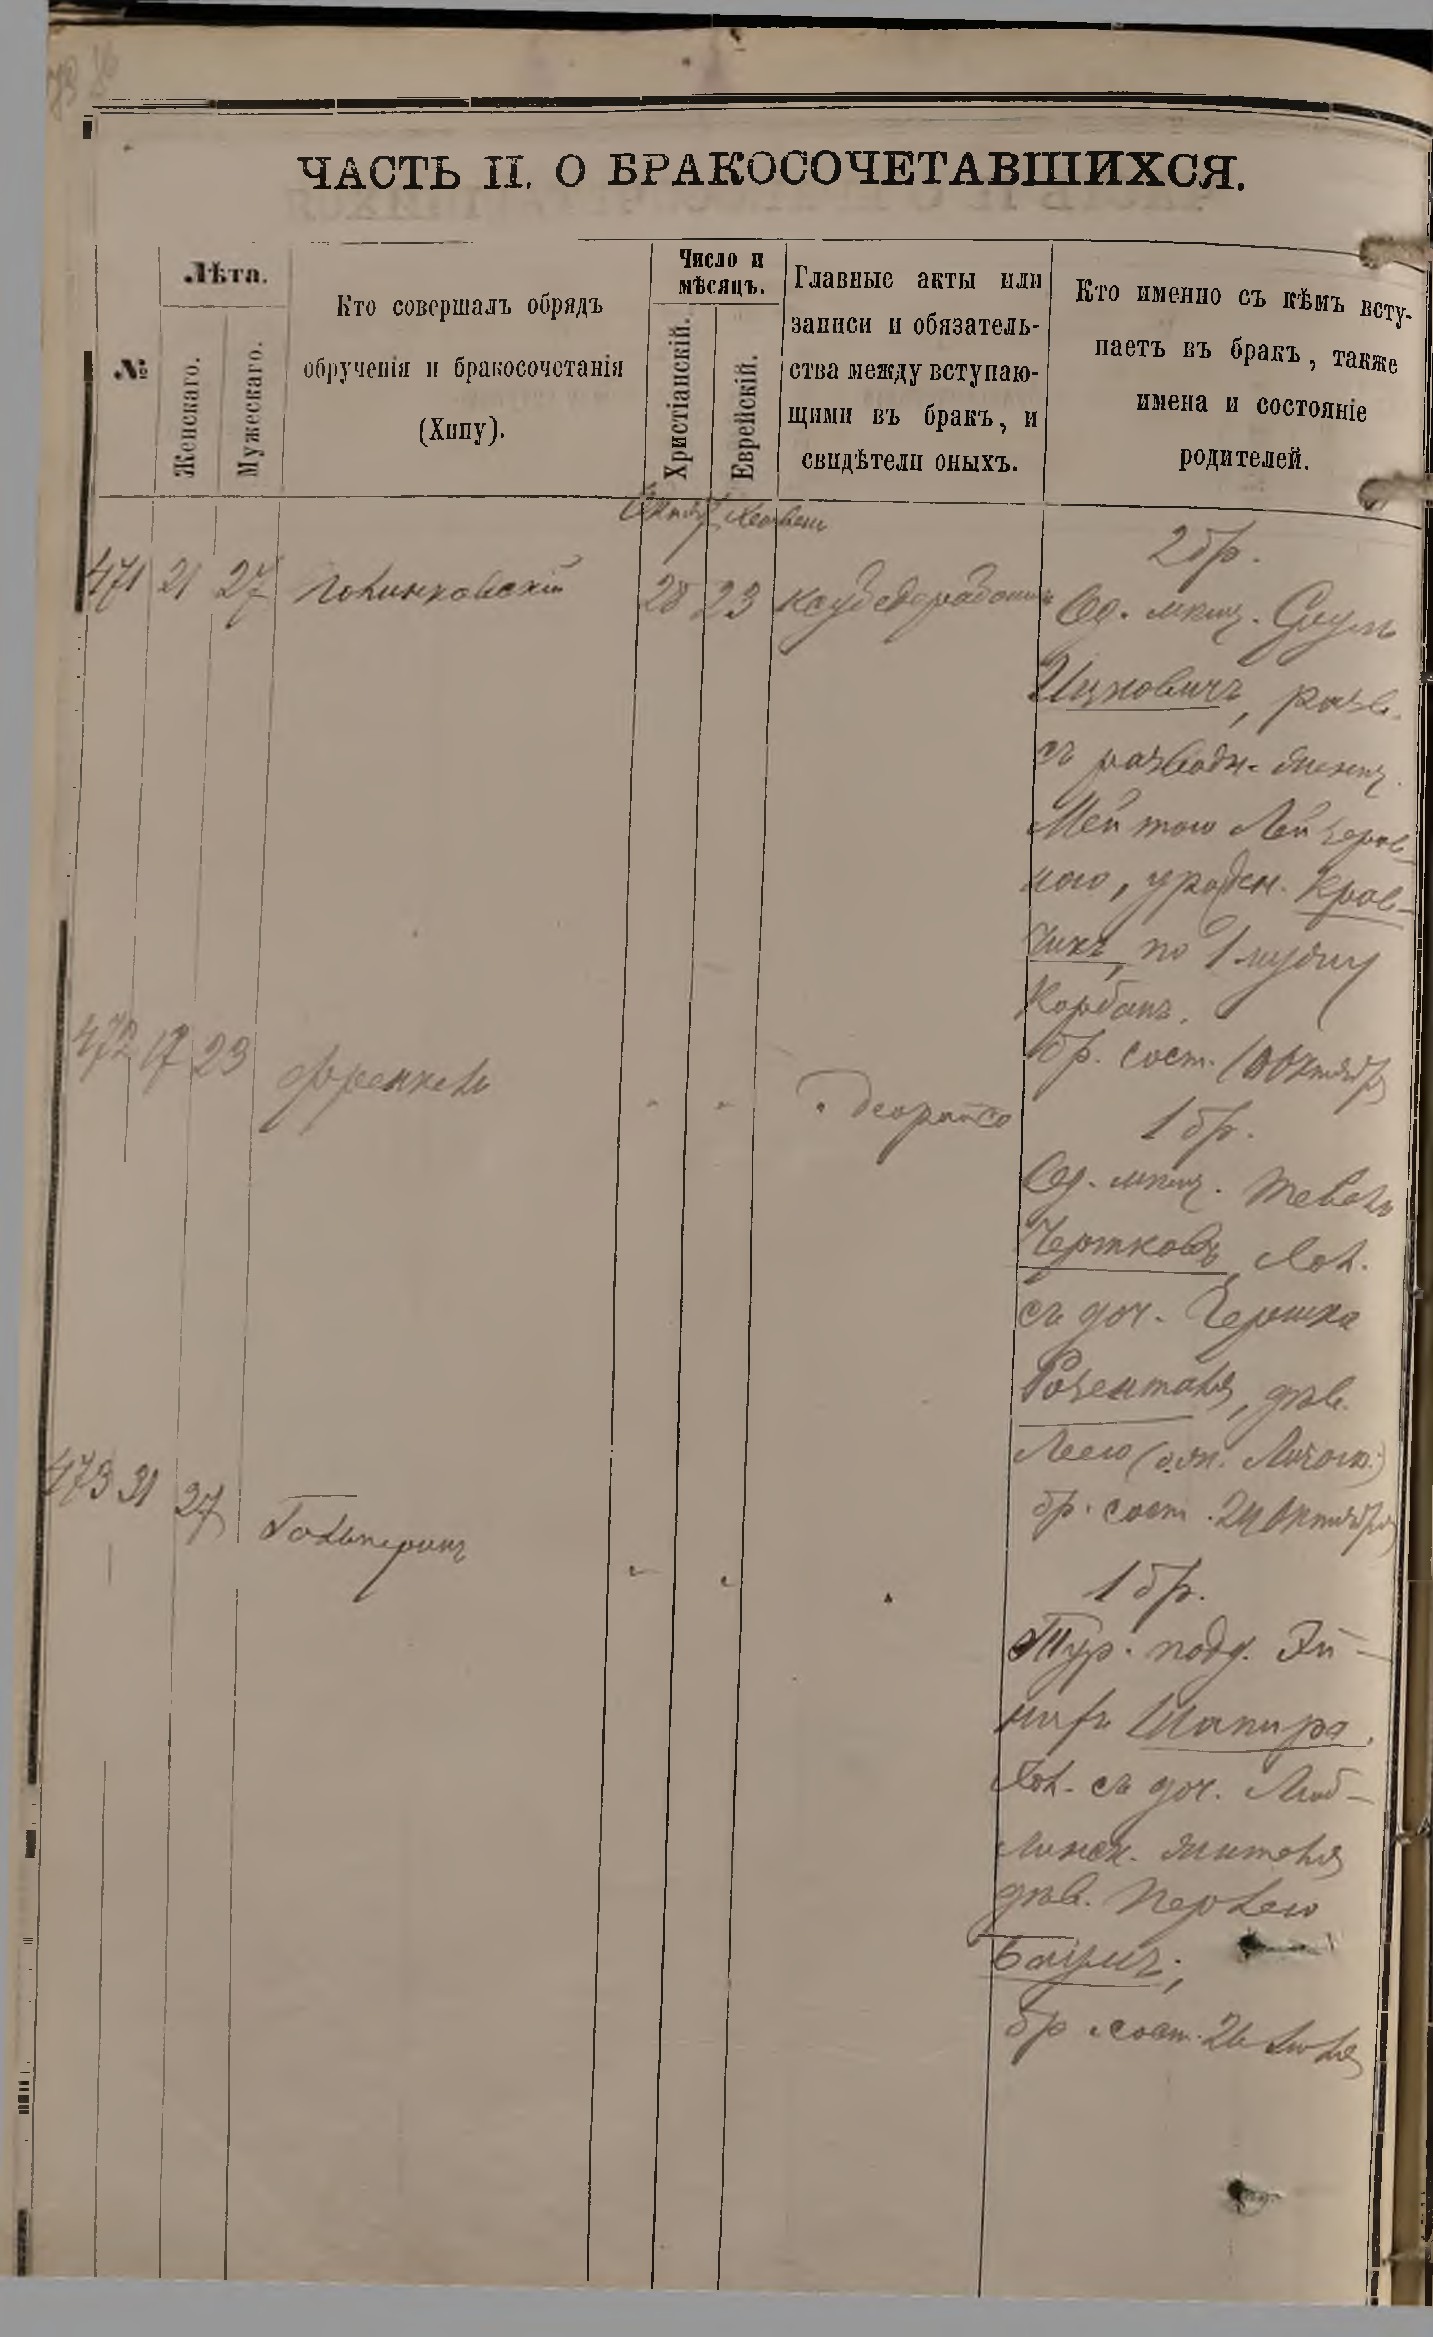 ЧАСТЬ II. О БРАКОСОЧЕТАВШИХСЯ.
№
Лѣта.
Женскаго.
Мужескаго.
Кто совершалъ обрядъ
обрученія и бракосочетанія
(Хипу).
Число и
мѣсяцъ.
Христіанскій.
Еврейскій.
Главные акты или
записи и обязатель-
ства между вступаю-
щими въ бракъ, и
свидѣтели оныхъ.
Кто именно съ кѣмъ всту-
паетъ въ бракъ, также
имена и состояніе
родителей.
471 21 27
28 23
2 бр.
Од. мѣщ. Сруль
Ицковичъ, разв.
съ разводн. женщ.
Мейтою Лейзеров-
ною, урожден. Крав-
чикъ, по 1 мужу
Корбанъ.
бр. сост. Октября
472 17 23
Френкель
1 бр.
Од. мѣщ. Тевель
Чертковъ, хол.
съ доч. Гершка
Розенталя, дѣв.
Леею
бр. сост. 24 Октября
473 31 27
Гальперинъ
1 бр.
Тур. подд.
Шапиро,
Хол. съ доч. Люб-
линск. жителя
дѣв. Перлею
Баумъ;
бр. сост. 26